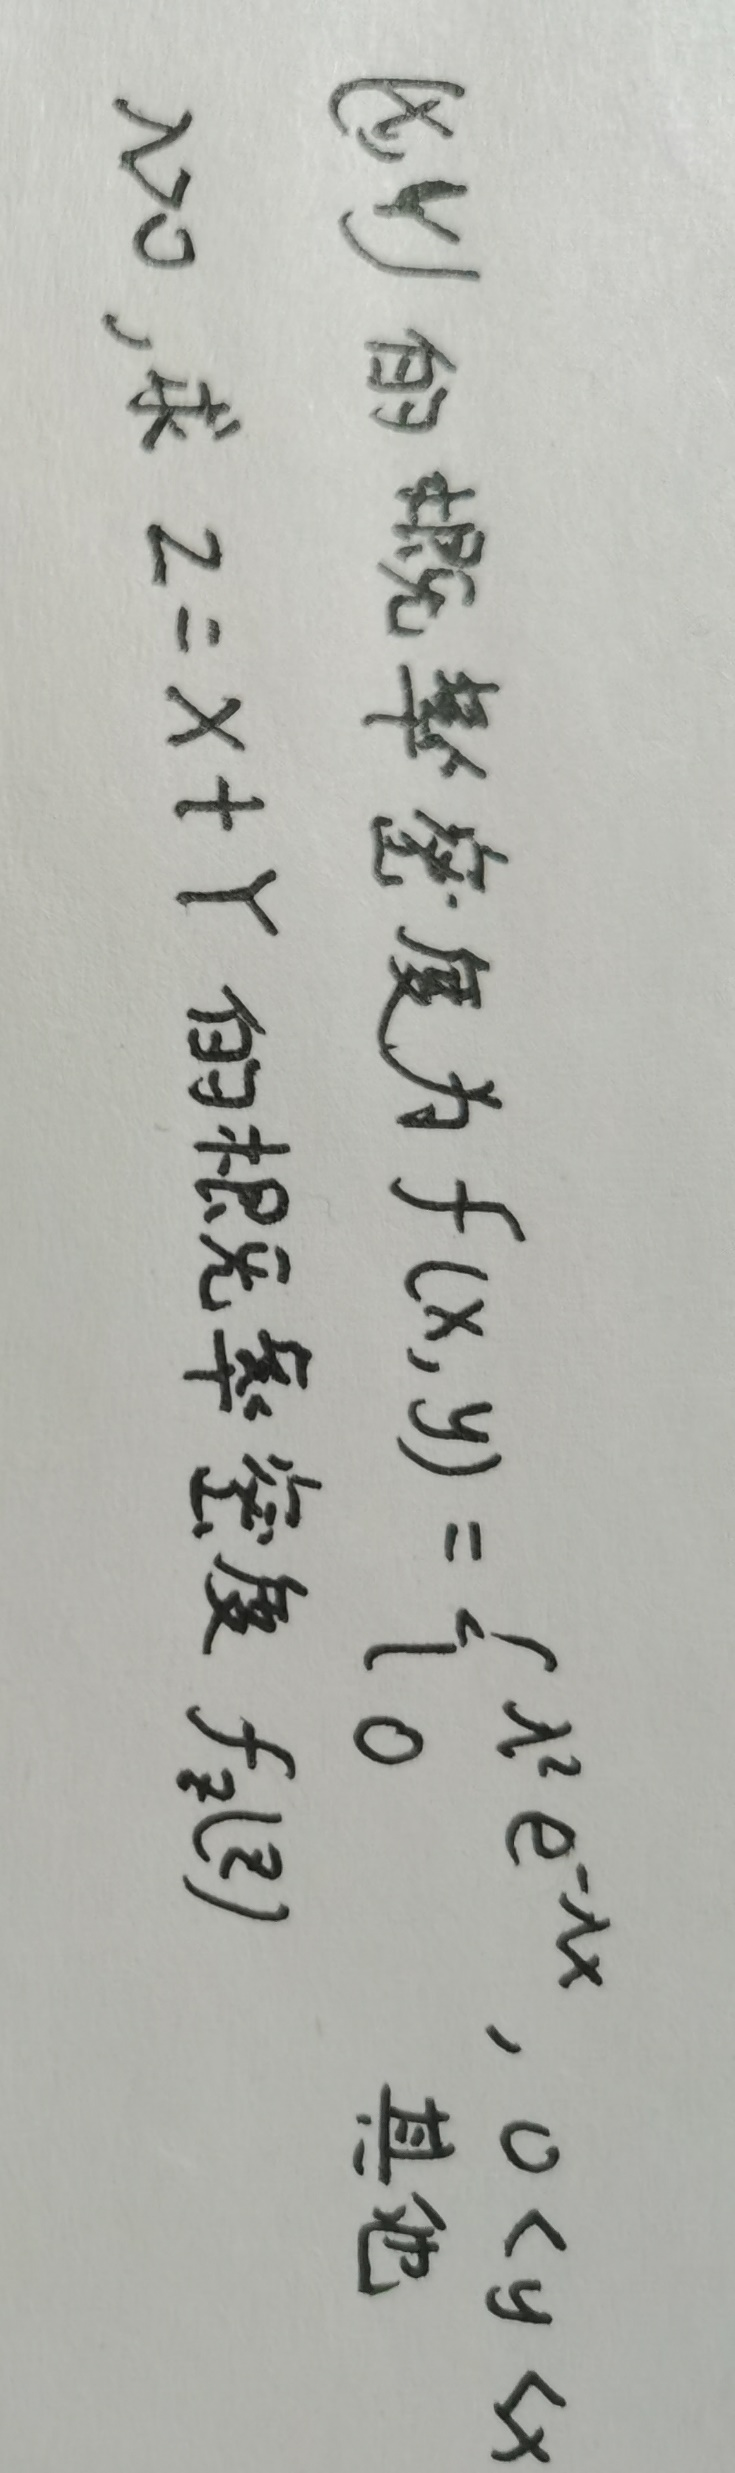 (X,Y)的概率密度为f(x,y)={λ²e^{-λx},0<y<x
0 其他
λ>0,求Z=X+Y的概率密度f_Z(z)